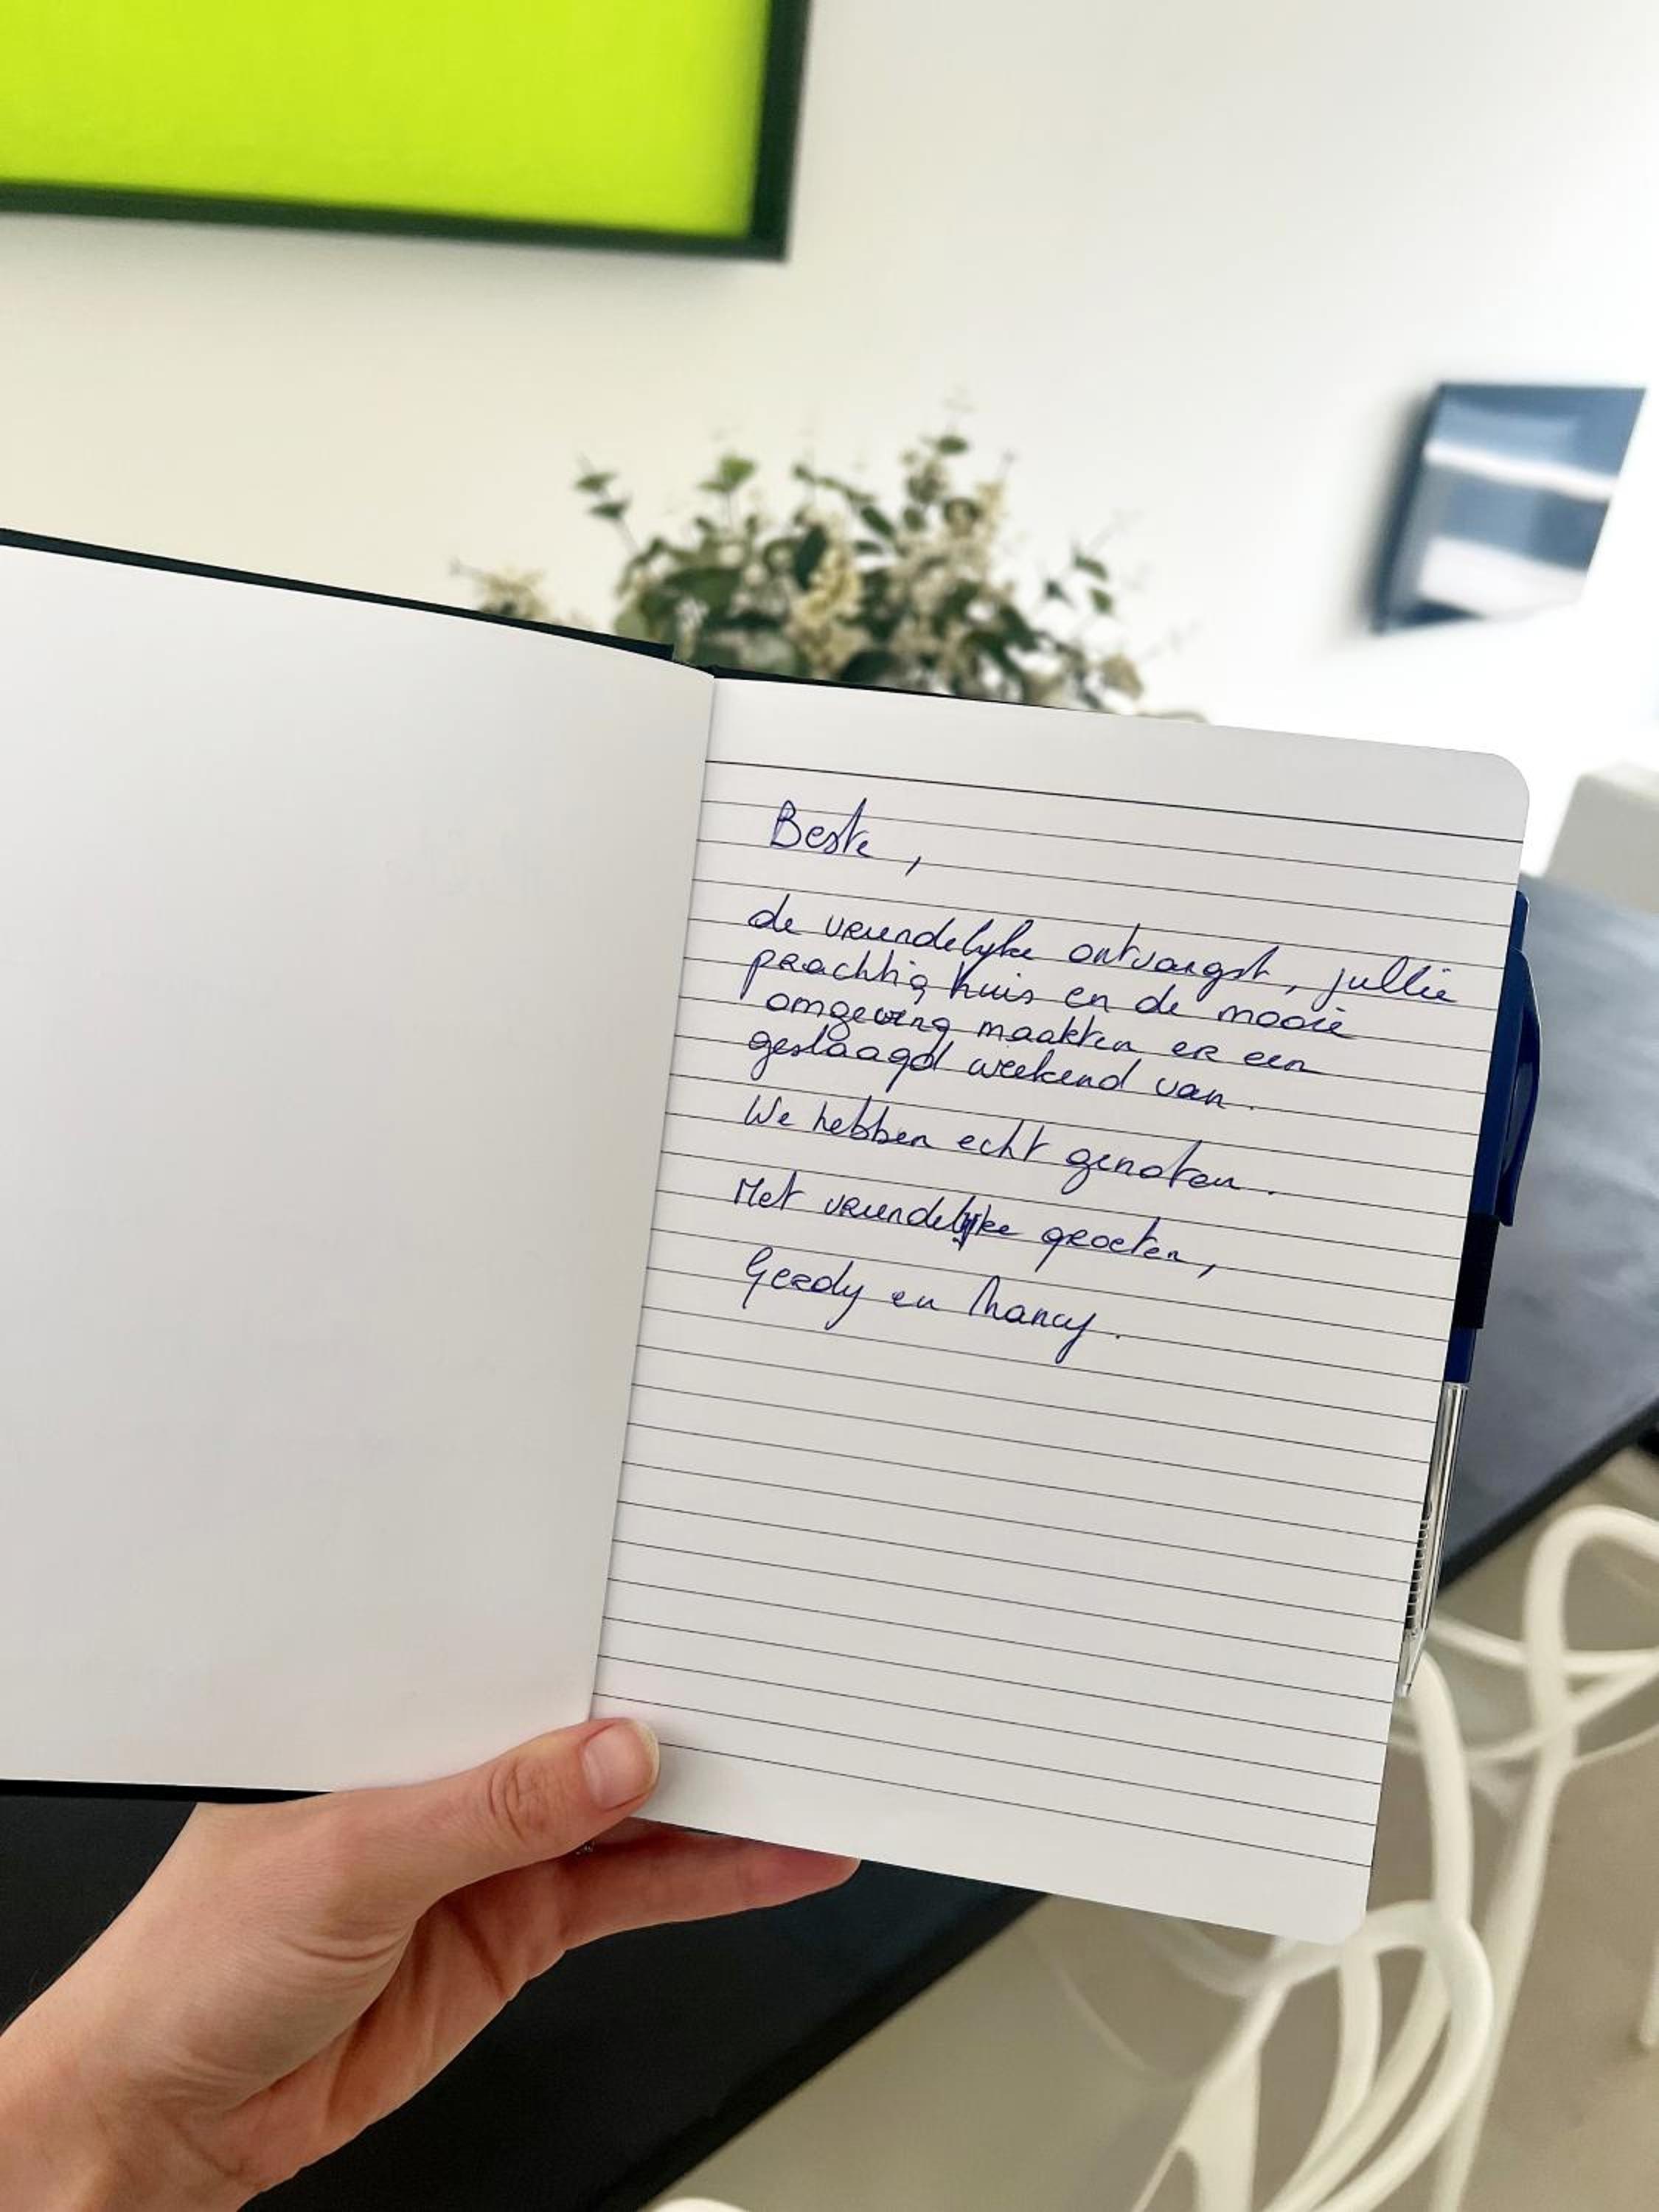 Beste,
de vriendelijke ontvangst, jullie
prachtig huis en de mooie
omgeving maakten er een
geslaagd weekend van.
We hebben echt genoten.
Met vriendelijke groeten,
Gerdy en Nancy.